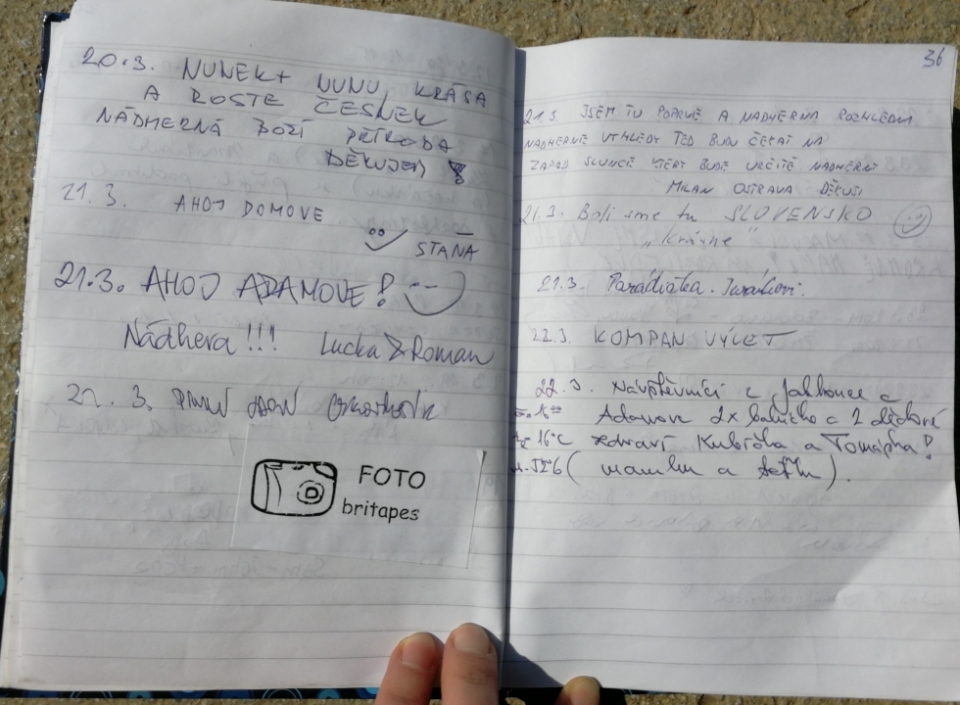 20.3. NUNEK + NUNU, KRÁSA
A ROSTE ČESNEK
NÁDHERNÁ BOŽÍ PŘÍRODA
DĚKUJEM
21.3. AHOJ DOMOVE
STAŇA
21.3. AHOJ ADAMOVE!
Nádhera!!! Lucka & Roman
21. 3.
FOTO
britapes
36
21.3. JSEM TU POPRVÉ A NÁDHERNÁ ROZHLEDNA
NÁDHERNÉ VÝHLEDY TEĎ BUDU ČEKAT NA
ZÁPAD SLUNCE KTERÝ BUDE URČITĚ NÁDHERNÝ
MILAN OSTRAVA DĚKUJI
21.3. Boli sme tu SLOVENSKO
„krásne"
21.3. Parádička.
22.3. KOMPAN VÝLET
22.3. Návštěvníci z Jablonce a
Adamova 2x babička a 2 dědové
16°C zdraví Kubíčka a Tomáška!
(mamku a